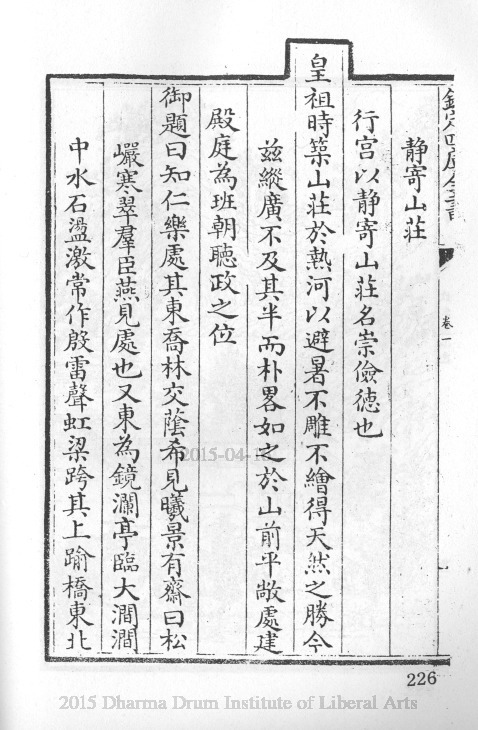 欽定四庫全書
卷一
静寄山莊
行宫以静寄山莊名崇儉徳也
皇祖時築山莊於熱河以避暑不雕不繪得天然之勝今
兹縱廣不及其半而朴畧如之於山前平敞處建
殿庭為班朝聽政之位
御題曰知仁樂處其東喬林交蔭希見曦景有齋曰松
巗寒翠羣臣燕見處也又東為鏡瀾亭臨大澗澗
中水石盪激常作殷雷聲虹梁跨其上踰橋東北
2015-04-1
226
2015 Dharma Drum Institute of Liberal Arts